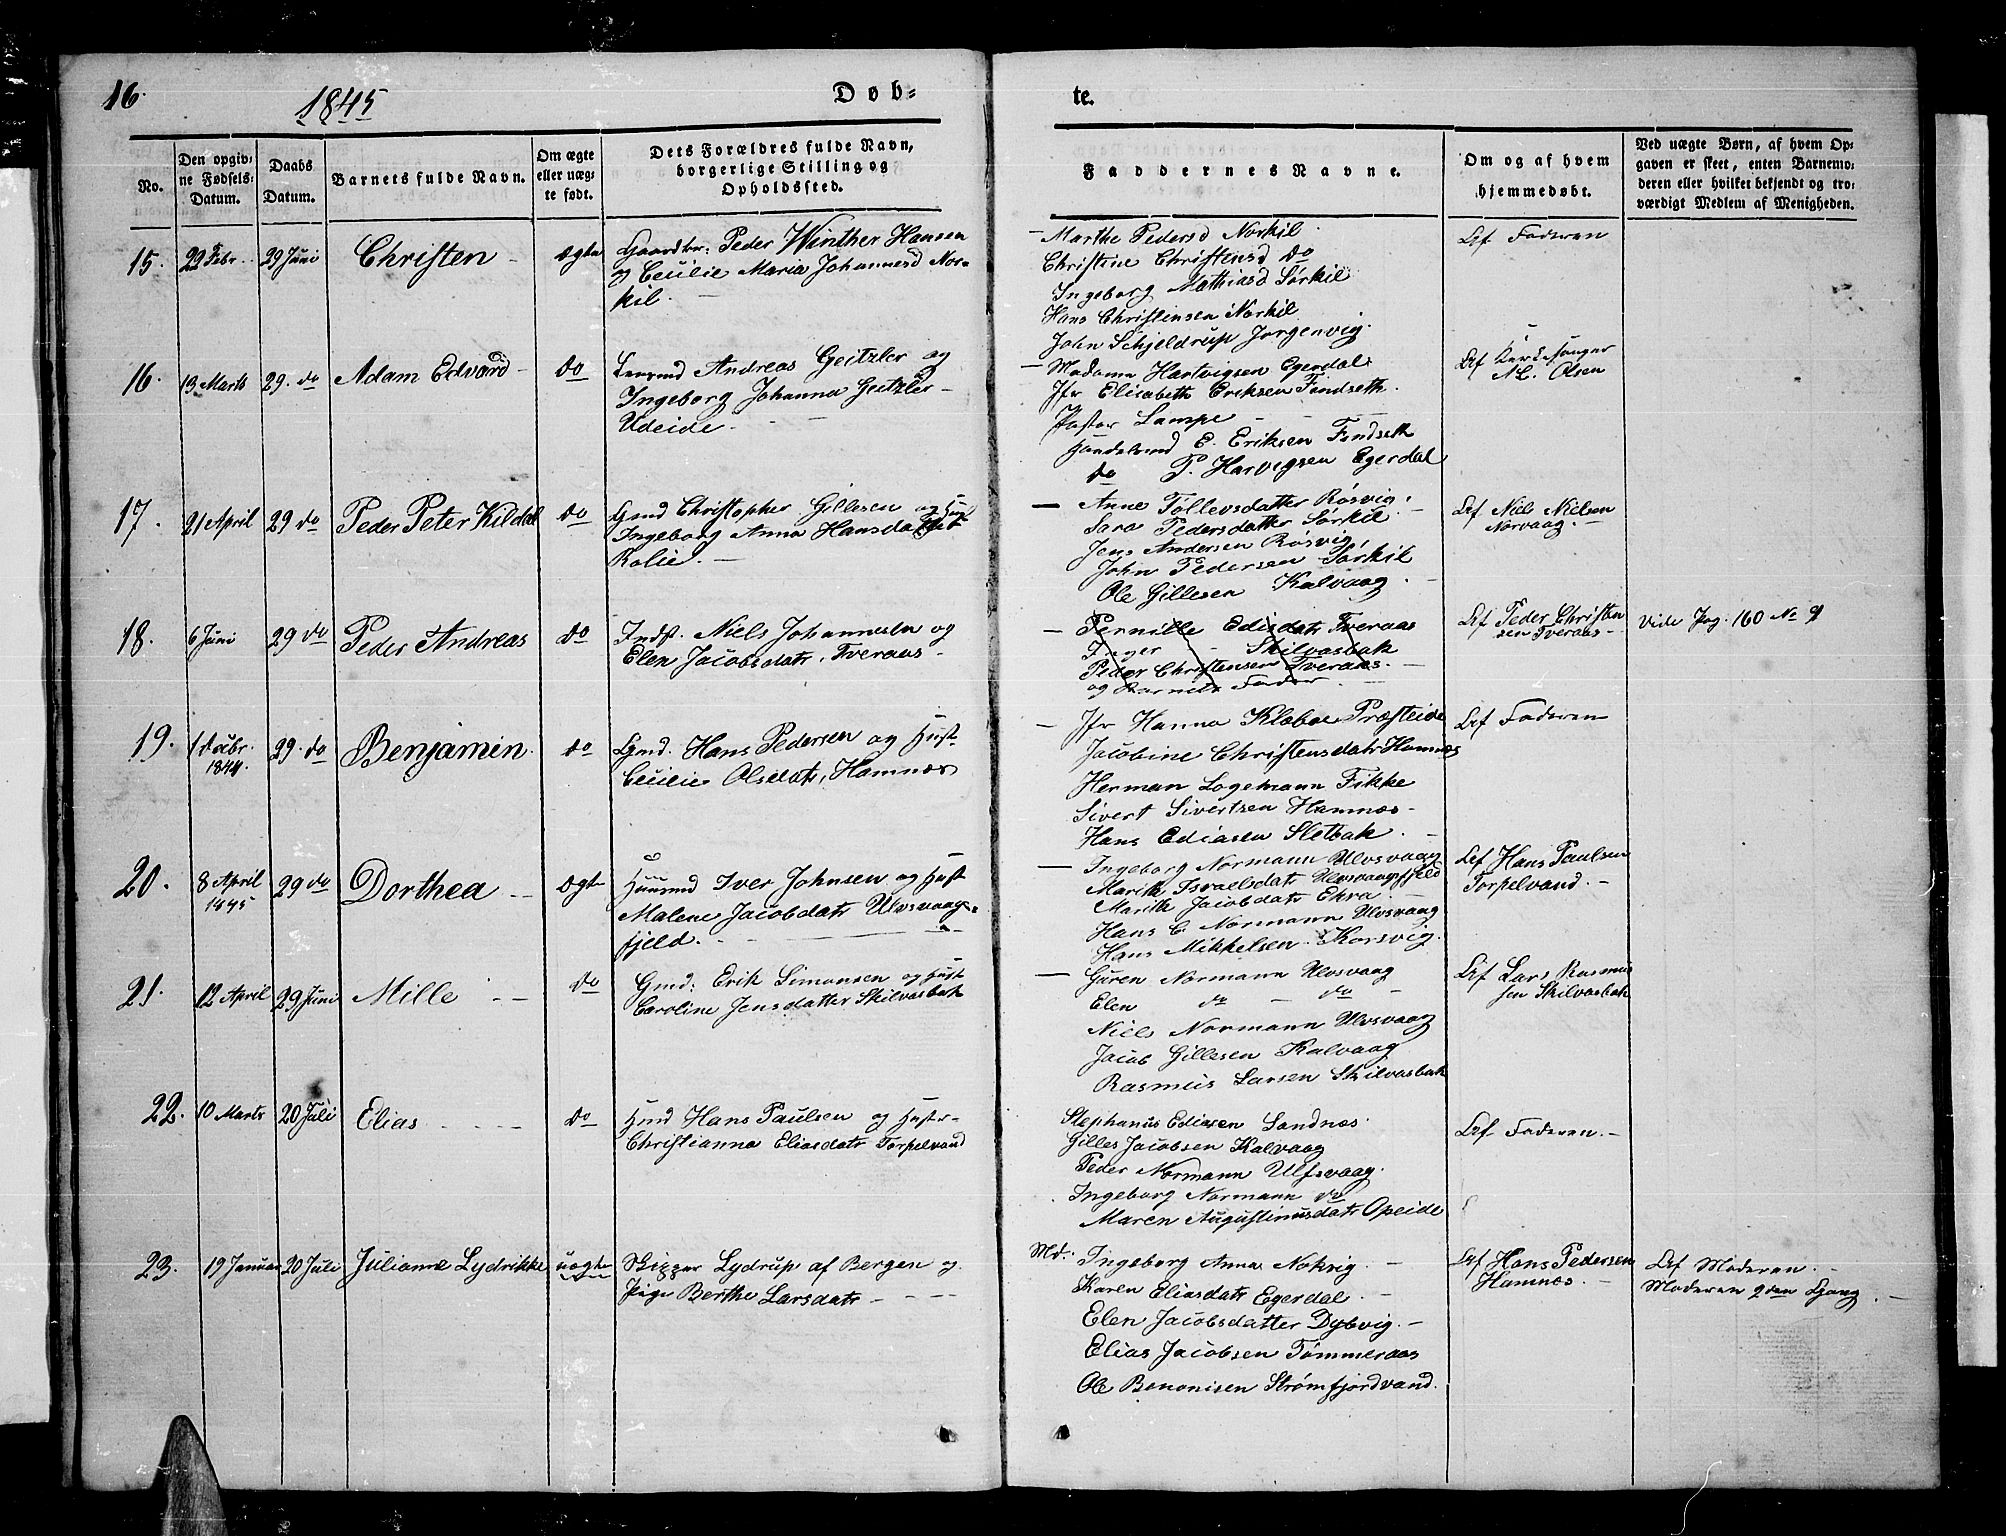 16.
1845
Døb-
te.
No.
Den opgiv-
ne Fødsels-
Datum.
Daabs
Datum.
Barnets fulde Navn.
Om ægte
eller uæg-
te født.
Dets Forældres fulde Navn,
borgerlige Stilling og
Opholdssted.
Faddernes Navne.
Om og af hvem
hjemmedøbt.
Ved uægte Børn, af hvem Op-
gaven er skeet, enten Barnemo-
deren eller hvilket bekjendt og tro-
værdigt Medlem af Menigheden.
15. 29 Febr. 29 Juni Christen Ægte
Gaardbr: Peder Winther Hansen
og Cecilie Maria Johannesd Nor-
kil.
Marthe Pedersd Norkil.
Christine Christensd do
Ingeborg Mathiasd Sørkil
Hans Christensen Norkil
John Schjeldrup Jorgenvig.
Af Faderen
16. 13 Marts 29. do Adam Edvard do
Andreas Geitzler og
Ingeborg Johanna Geitzler
Udeide.
Madame Hartvigsen Egerdal
Jfr Elisabeth Eriksen Findseth.
Pastor Lampe
Handelsmd E. Eriksen Findseth
do P. Harvigsen Egerdal
Af Kirkesanger
N. L. Olsen
17. 21 April 29 do Peder Peter Kildal do
Gmd Christopher Gillesen og Hust
Ingeborg Anna Hansdatter
Rolie.
Anne Tollevsdatter Røsvig.
Sara Pedersdatter Sørkil
Jens Andersen Røsvig
John Pedersen Sørkil
Ole Gillesen Kalvaag.
Af Niels Nielsen
Norvaag.
18. 6 Juni 29 do Peder Andreas do
Indst. Niels Johannesen og
Elen Jacobsdatr, Tveraas
Pernille Edisdatr Tveraas
Inger Skilvasbak
Peder Christensen Tveraas.
og Barnets Fader.
Af Peder Christen
sen Tveraas
Vide Pag. 160 No 9
19. 1 Decbr. 29. do Benjamin. do
1844.
Gmd. Hans Pedersen og Hust
Cecilie Olsdatr, Hamnæs
Jfr Hanna Klæboe Præsteide
Jacobine Christensdatr Hamnæs
Herman Logemann Fikke
Sivert Sivertsen Hamnæs
Hans Ediasen Sletbak.
Af Faderen
20. 8 April 29 do Dorthea Ægte
1845
Huusmd Iver Johnsen og Hust
Malene Jacobdatr Ulvsvaag-
fjeld.
Ingeborg Normann Ulvsvaag
Marith Israelsdatr Ulvsvaagfjeld
Marith Jacobdatr Ekra
Hans C. Normann Ulvsvaag
Hans Mikkelsen Korsvig.
Af Hans Paulsen
Torpelvand.
21. 12 April 29 Juni Mille do
Gmd: Erik Simonsen og Hust
Caroline Jensdatter Skilvasbak
Guren Normann Ulvsvaag
Elen do do
Niels Normann Ulvsvaag
Jacob Gillesen Kalvaag
Rasmus Larsen Skilvasbak
Af Lars Rasmus
sen Skilvasbak
22. 10 Marts 20 Juli Elias do
Hmd Hans Paulsen og Hustr-
Christianna Eliasdatr Torpelvand
Stephanus Ediasen Sandnæs.
Gilles Jacobsen Kalvaag
Peder Normann Ulfsvaag.
Ingeborg Normann do
Maren Augustinusdatr Opeide
Af Faderen.
23. 19 Januar 20 Juli Julianne Lydrikke uægte
Skipper Lydrup af Bergen og.
Pige Berthe Larsdatr
Md. Ingeborg Anna Nokvig.
Karen Eliasdatr Egerdal
Elen Jacobsdatter Dybvig.
Elias Jacobsen Tømmeraas
Ole Benonisen Strømfjordvand.
Af Hans Pedersen
Hamnæs.
Af Moderen.
Moderen 2den Gang.